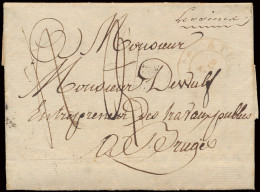 Lessines
A Monsieur
Monsieur Dewulf
Entrepreneur des travaux publics
à Bruges